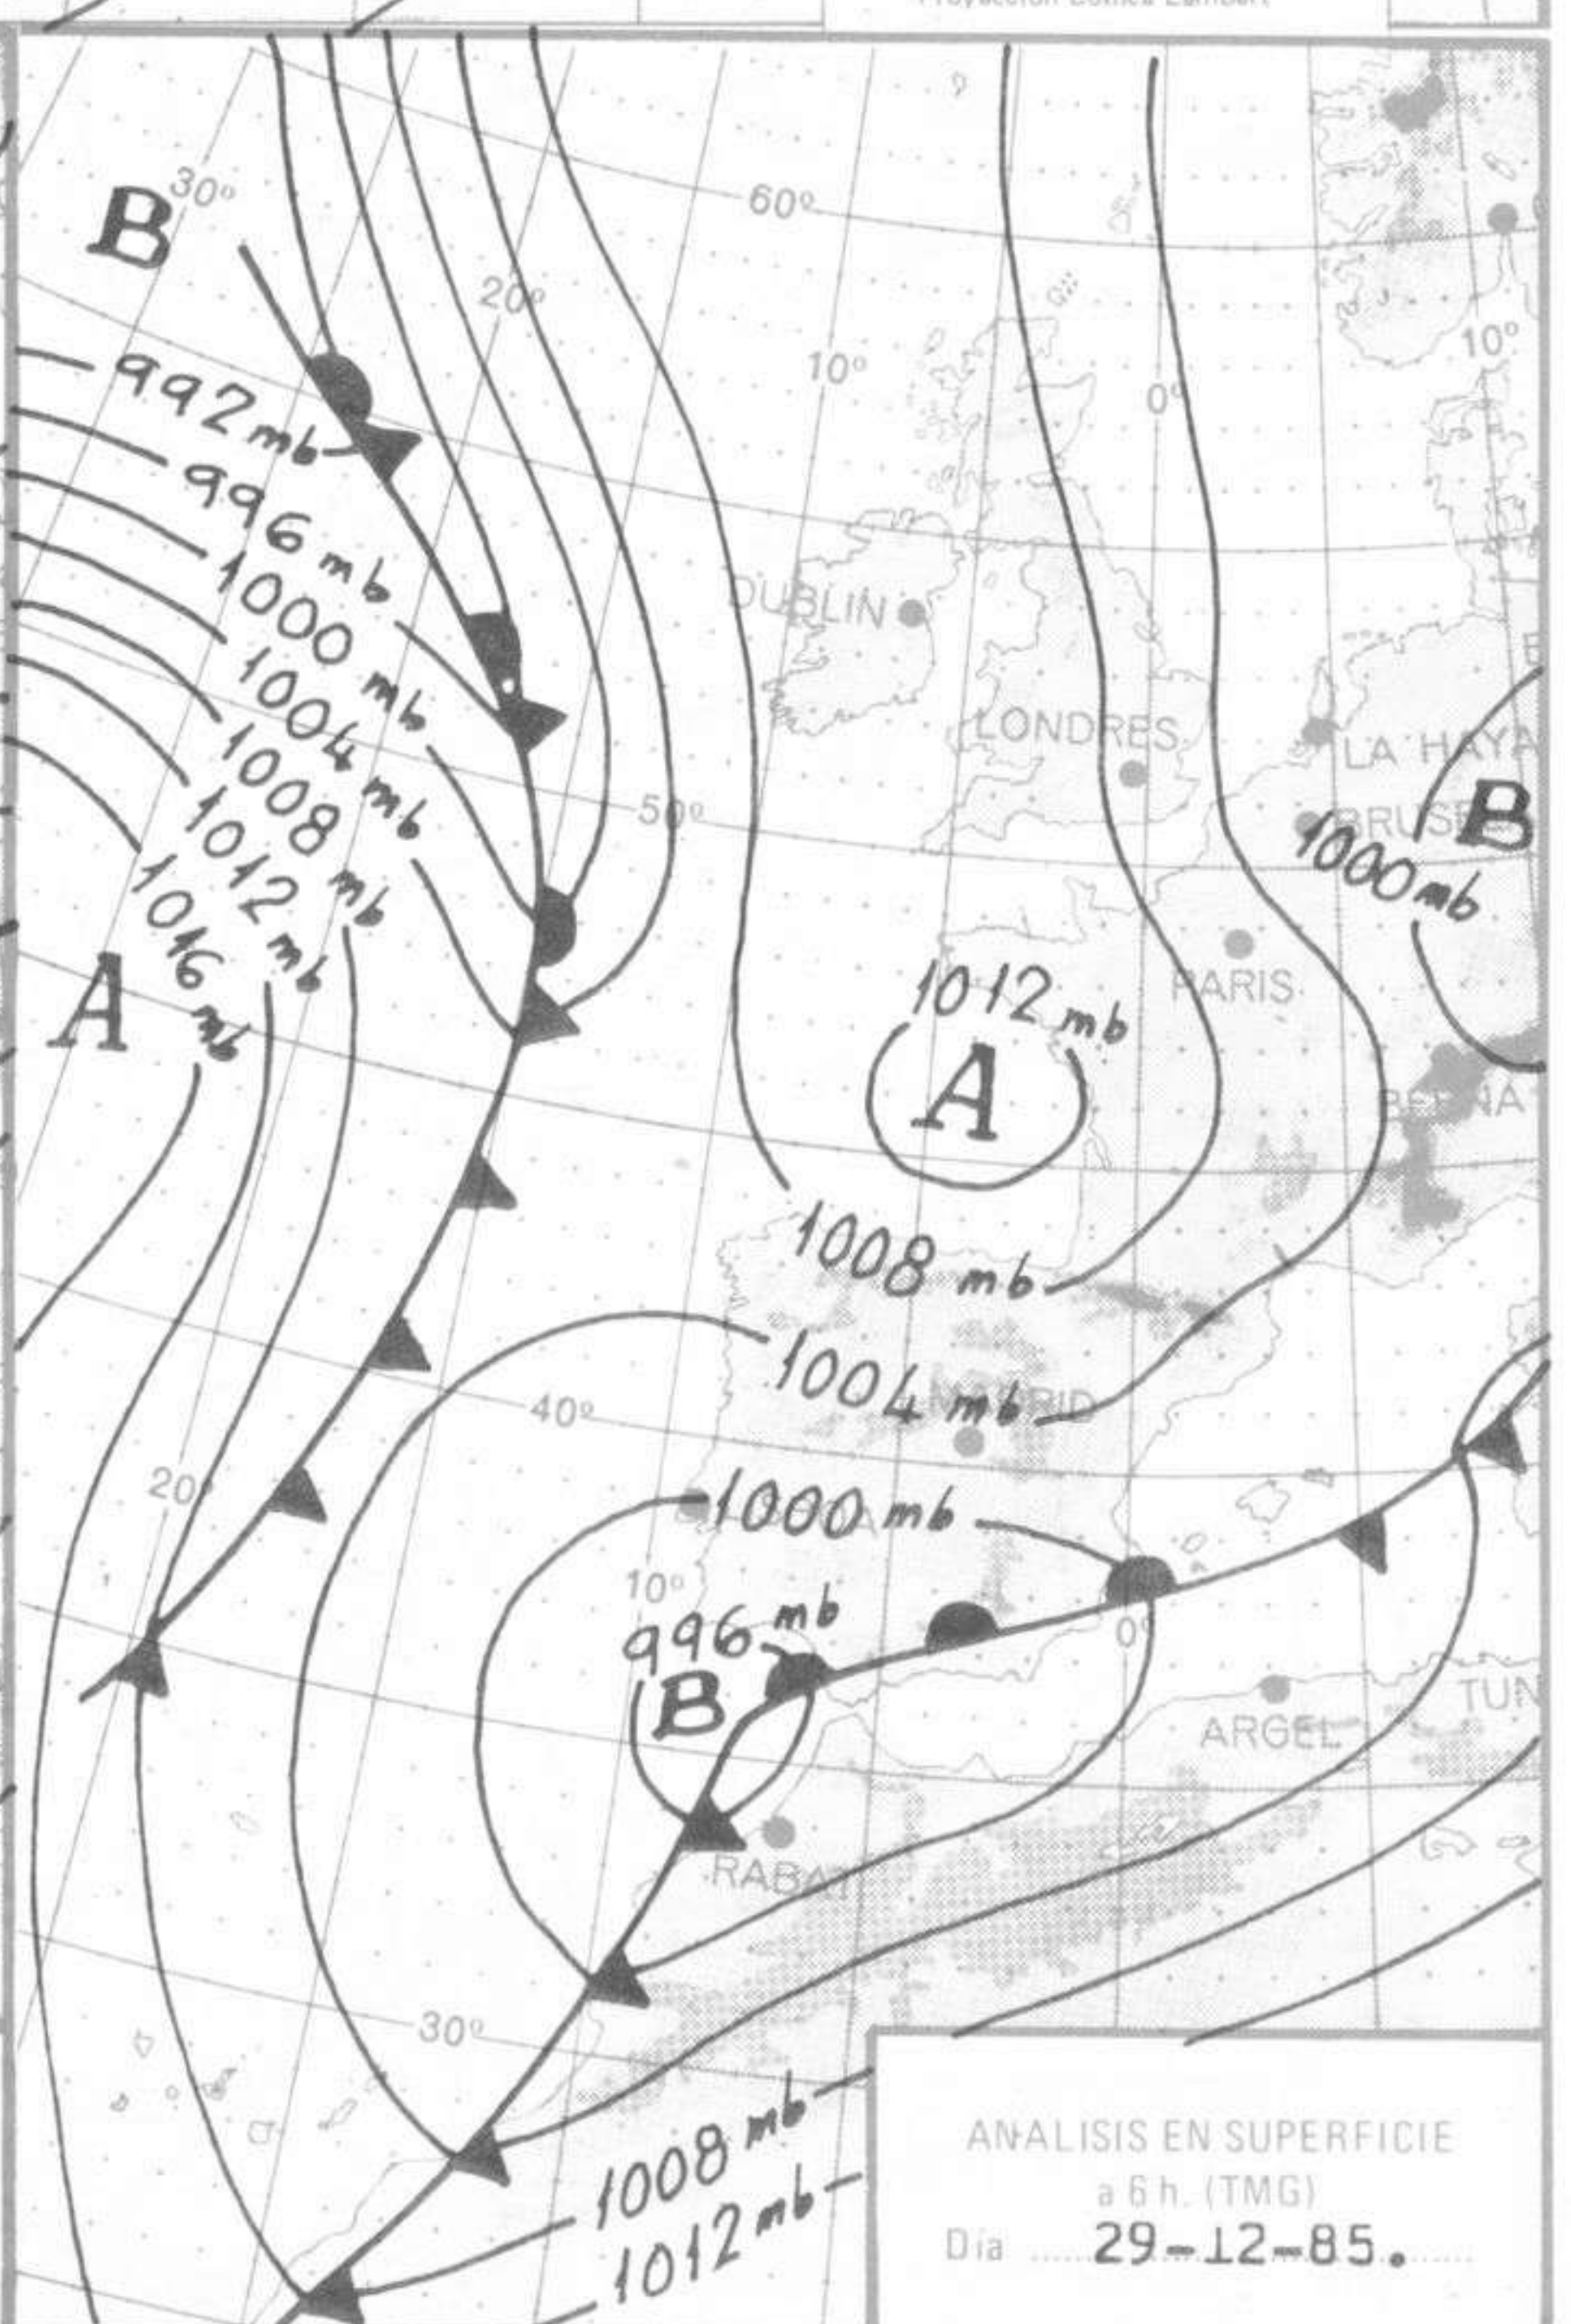 B
30º
60º
20º
10º
10º
0º
992 mb
996 mb
1000 mb
1004 mb
1008 mb
1012 mb
1016 mb
A
DUBLIN
LONDRES
LA HAYA
50º
B
1000 mb
PARIS
1012 mb
A
BERNA
1008 mb
1004 mb
40º
20º
1000 mb
10º
996 mb
B
0º
ARGEL
TUN
RABAT
30º
1008 mb
1012 mb
ANALISIS EN SUPERFICIE
a 6 h. (TMG)
Día 29-12-85.